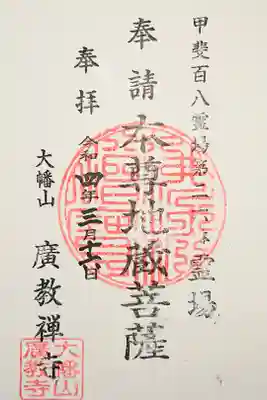 甲斐百八霊場第二六番霊場
奉請本尊地蔵菩薩
奉拝
令和四年三月十六日
大幡山
廣教禅寺
大幡山
廣教寺